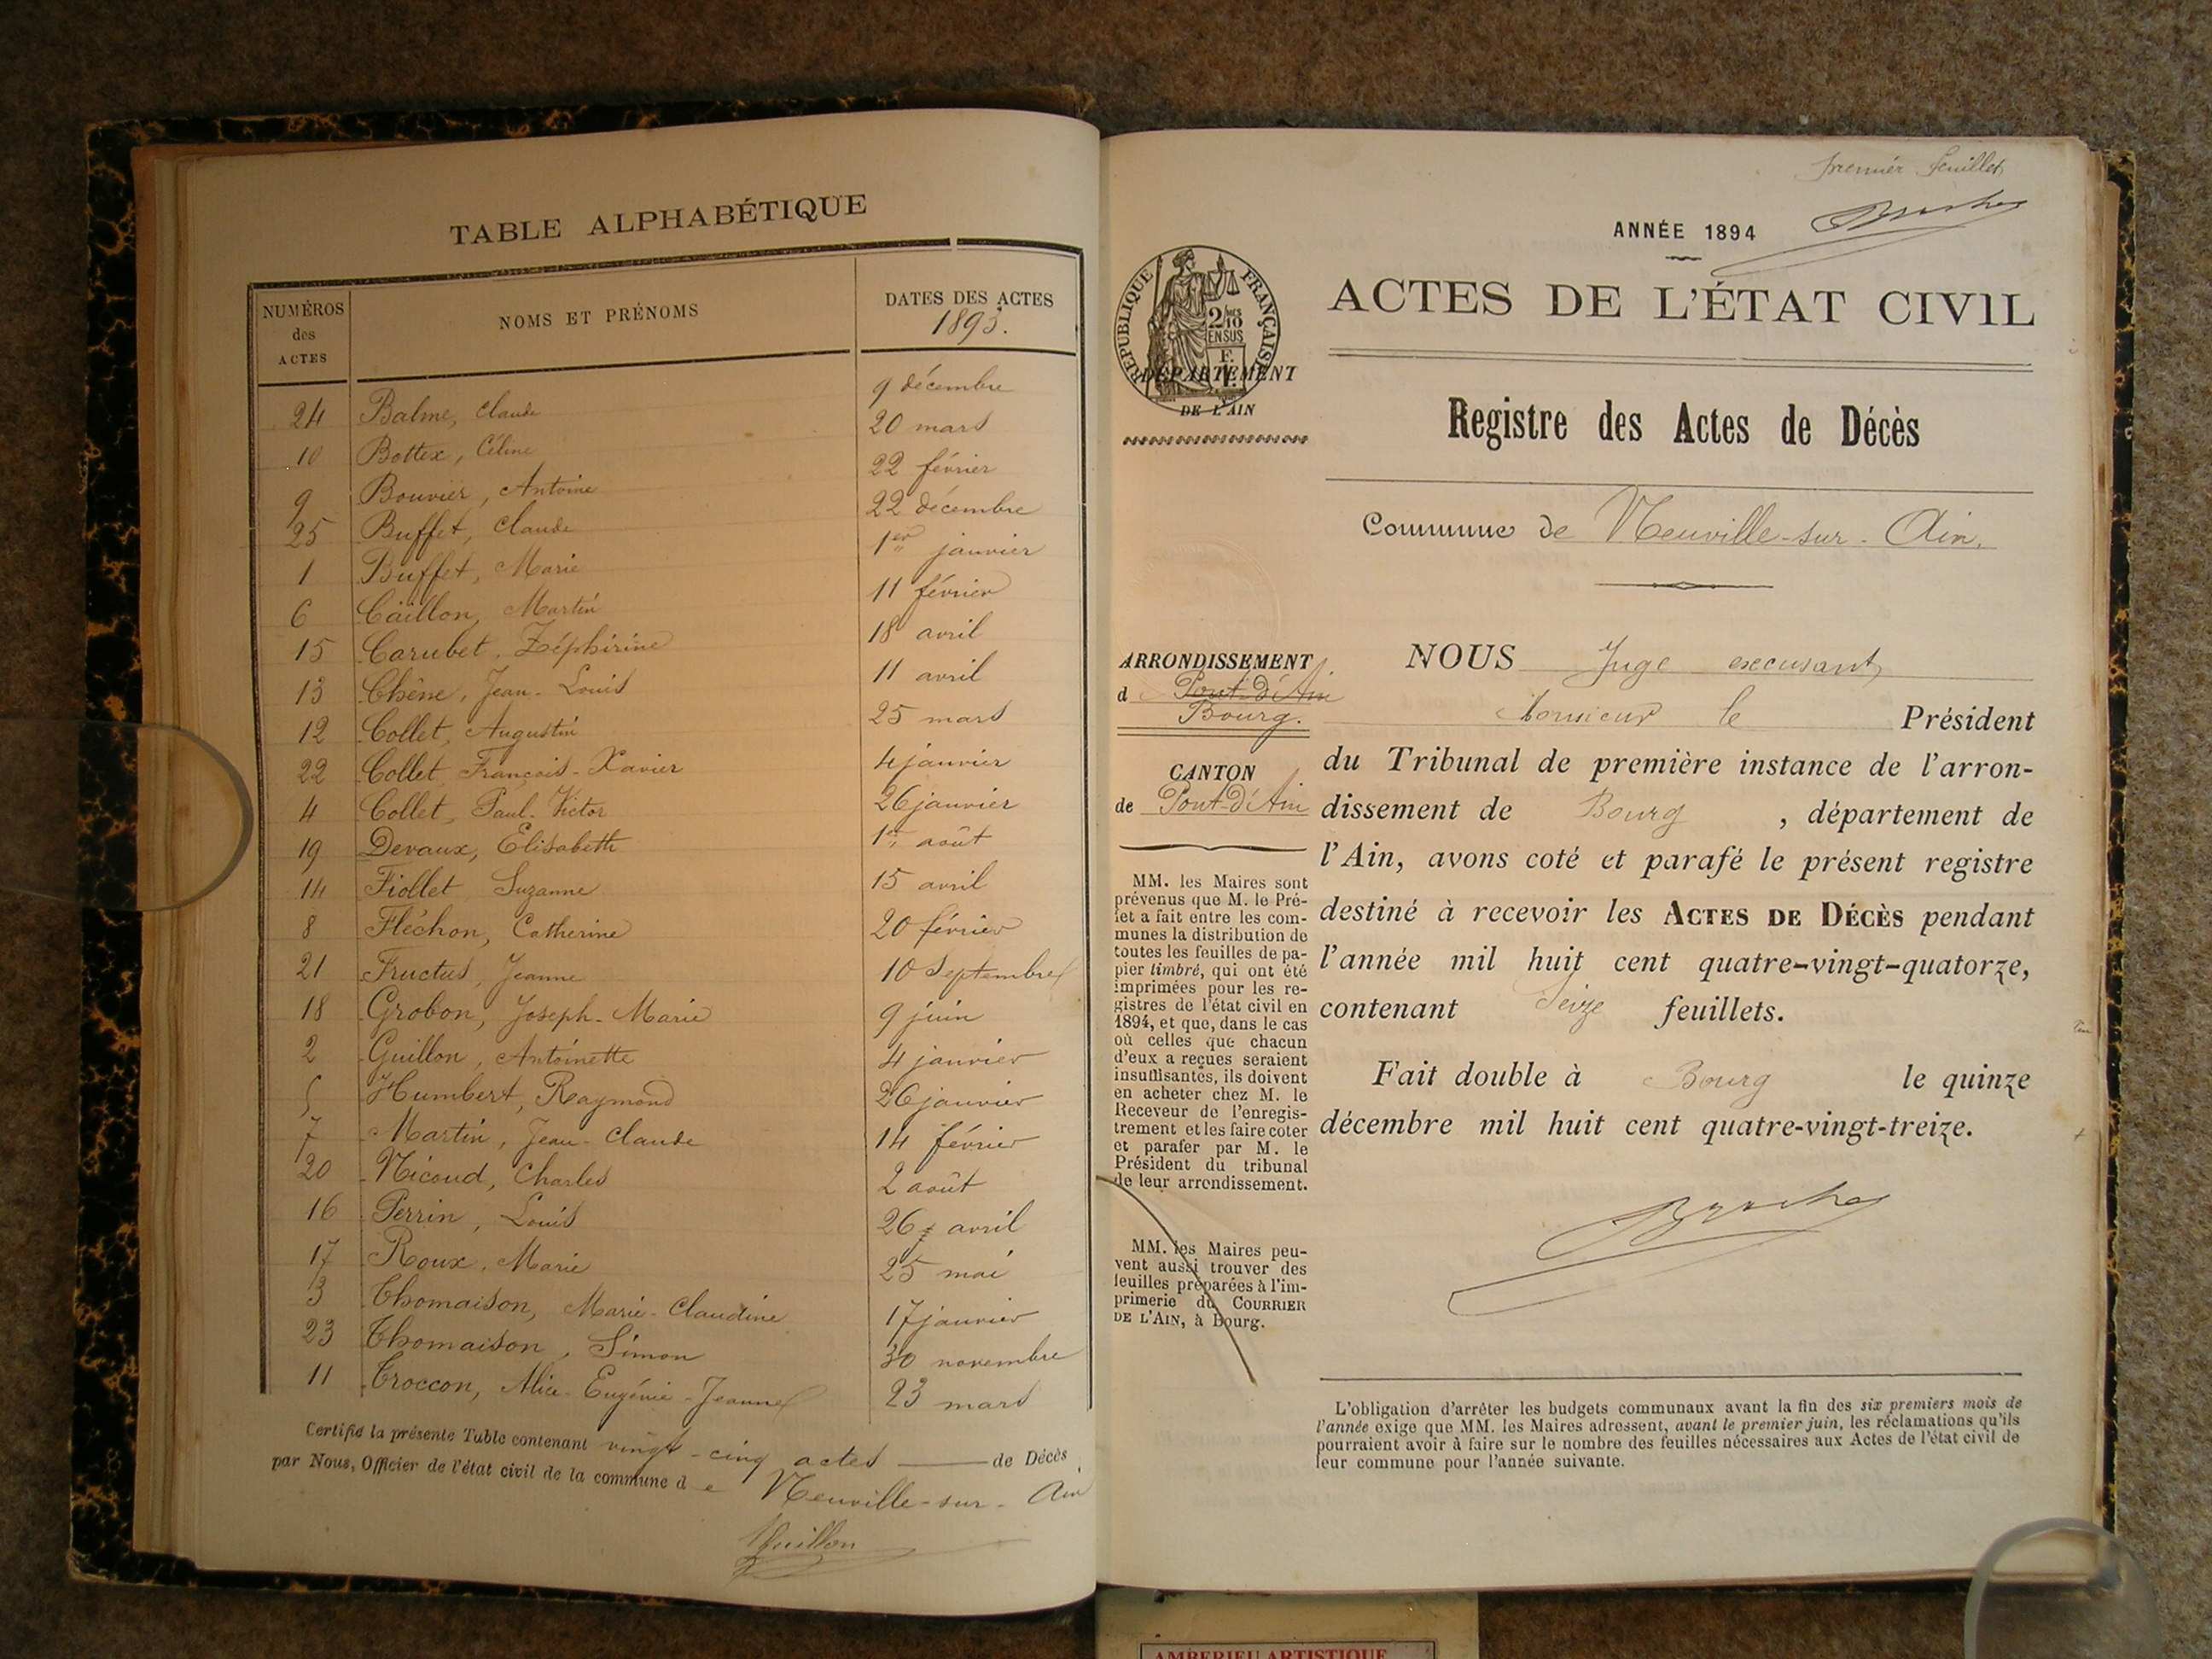 TABLE ALPHABÉTIQUE
NUMÉROS des ACTES NOMS ET PRÉNOMS DATES DES ACTES 1893.
24 Balme, Claude 9 décembre
10 Bottex, Céline 20 mars
9 Bouvier, Antoine 22 février
25 Buffet, Claude 22 décembre
1 Buffet, Marie 1er janvier
6 Caillon, Martin 11 février
15 Carubet, Zéphirine 18 avril
13 Chêne, Jean-Louis 11 avril
12 Collet, Augustin 25 mars
22 Collet, François-Xavier 4 janvier
4 Collet, Paul-Victor 26 janvier
19 Devaux, Elisabeth 1er août
14 Fiollet Suzanne 15 avril
8 Fléchon, Catherine 20 février
21 Fructus, Jeanne 10 Septembre
18 Grobon, Joseph-Marie 9 juin
2 Guillon, Antoinette 4 janvier
5 Humbert, Raymond 26 janvier
7 Martin, Jean-Claude 14 février
20 Nicoud, Charles 2 août
16 Perrin, Louis 26 avril
17 Roux, Marie 25 mai
3 Thomaison, Marie-Claudine 17 janvier
23 Thomaison, Simon 30 novembre
11 Troccon, Alice-Eugénie-Jeanne 23 mars
Certifié la présente Table contenant vingt-cinq actes de Décès
par Nous, Officier de l'état civil de la commune de Neuville-sur-Ain
Guillon
Premier feuillet
ANNÉE 1894
RÉPUBLIQUE FRANÇAISE
ACTES DE L'ÉTAT CIVIL
DÉPARTEMENT
DE L'AIN
Registre des Actes de Décès
Commune de Neuville-sur-Ain.
ARRONDISSEMENT
d Pont-d'Ain
Bourg.
CANTON
de Pont-d'Ain
MM. les Maires sont
prévenus que M. le Pré-
fet a fait entre les com-
munes la distribution de
toutes les feuilles de pa-
pier timbré, qui ont été
imprimées pour les re-
gistres de l'état civil en
1894, et que, dans le cas
où celles que chacun
d'eux a reçues seraient
insuffisantes, ils doivent
en acheter chez M. le
Receveur de l'enregis-
trement et les faire coter
et parafer par M. le
Président du tribunal
de leur arrondissement.
MM. les Maires peu-
vent aussi trouver des
feuilles préparées à l'im-
primerie du COURRIER
DE L'AIN, à Bourg.
NOUS Juge excusant
Monsieur le Président
du Tribunal de première instance de l'arron-
dissement de Bourg, département de
l'Ain, avons coté et parafé le présent registre
destiné à recevoir les ACTES DE DÉCÈS pendant
l'année mil huit cent quatre-vingt-quatorze,
contenant Seize feuillets.
Fait double à Bourg le quinze
décembre mil huit cent quatre-vingt-treize.
L'obligation d'arrêter les budgets communaux avant la fin des six premiers mois de
l'année exige que MM. les Maires adressent, avant le premier juin, les réclamations qu'ils
pourraient avoir à faire sur le nombre des feuilles nécessaires aux Actes de l'état civil de
leur commune pour l'année suivante.
AMBERIEU ARTISTIQUE